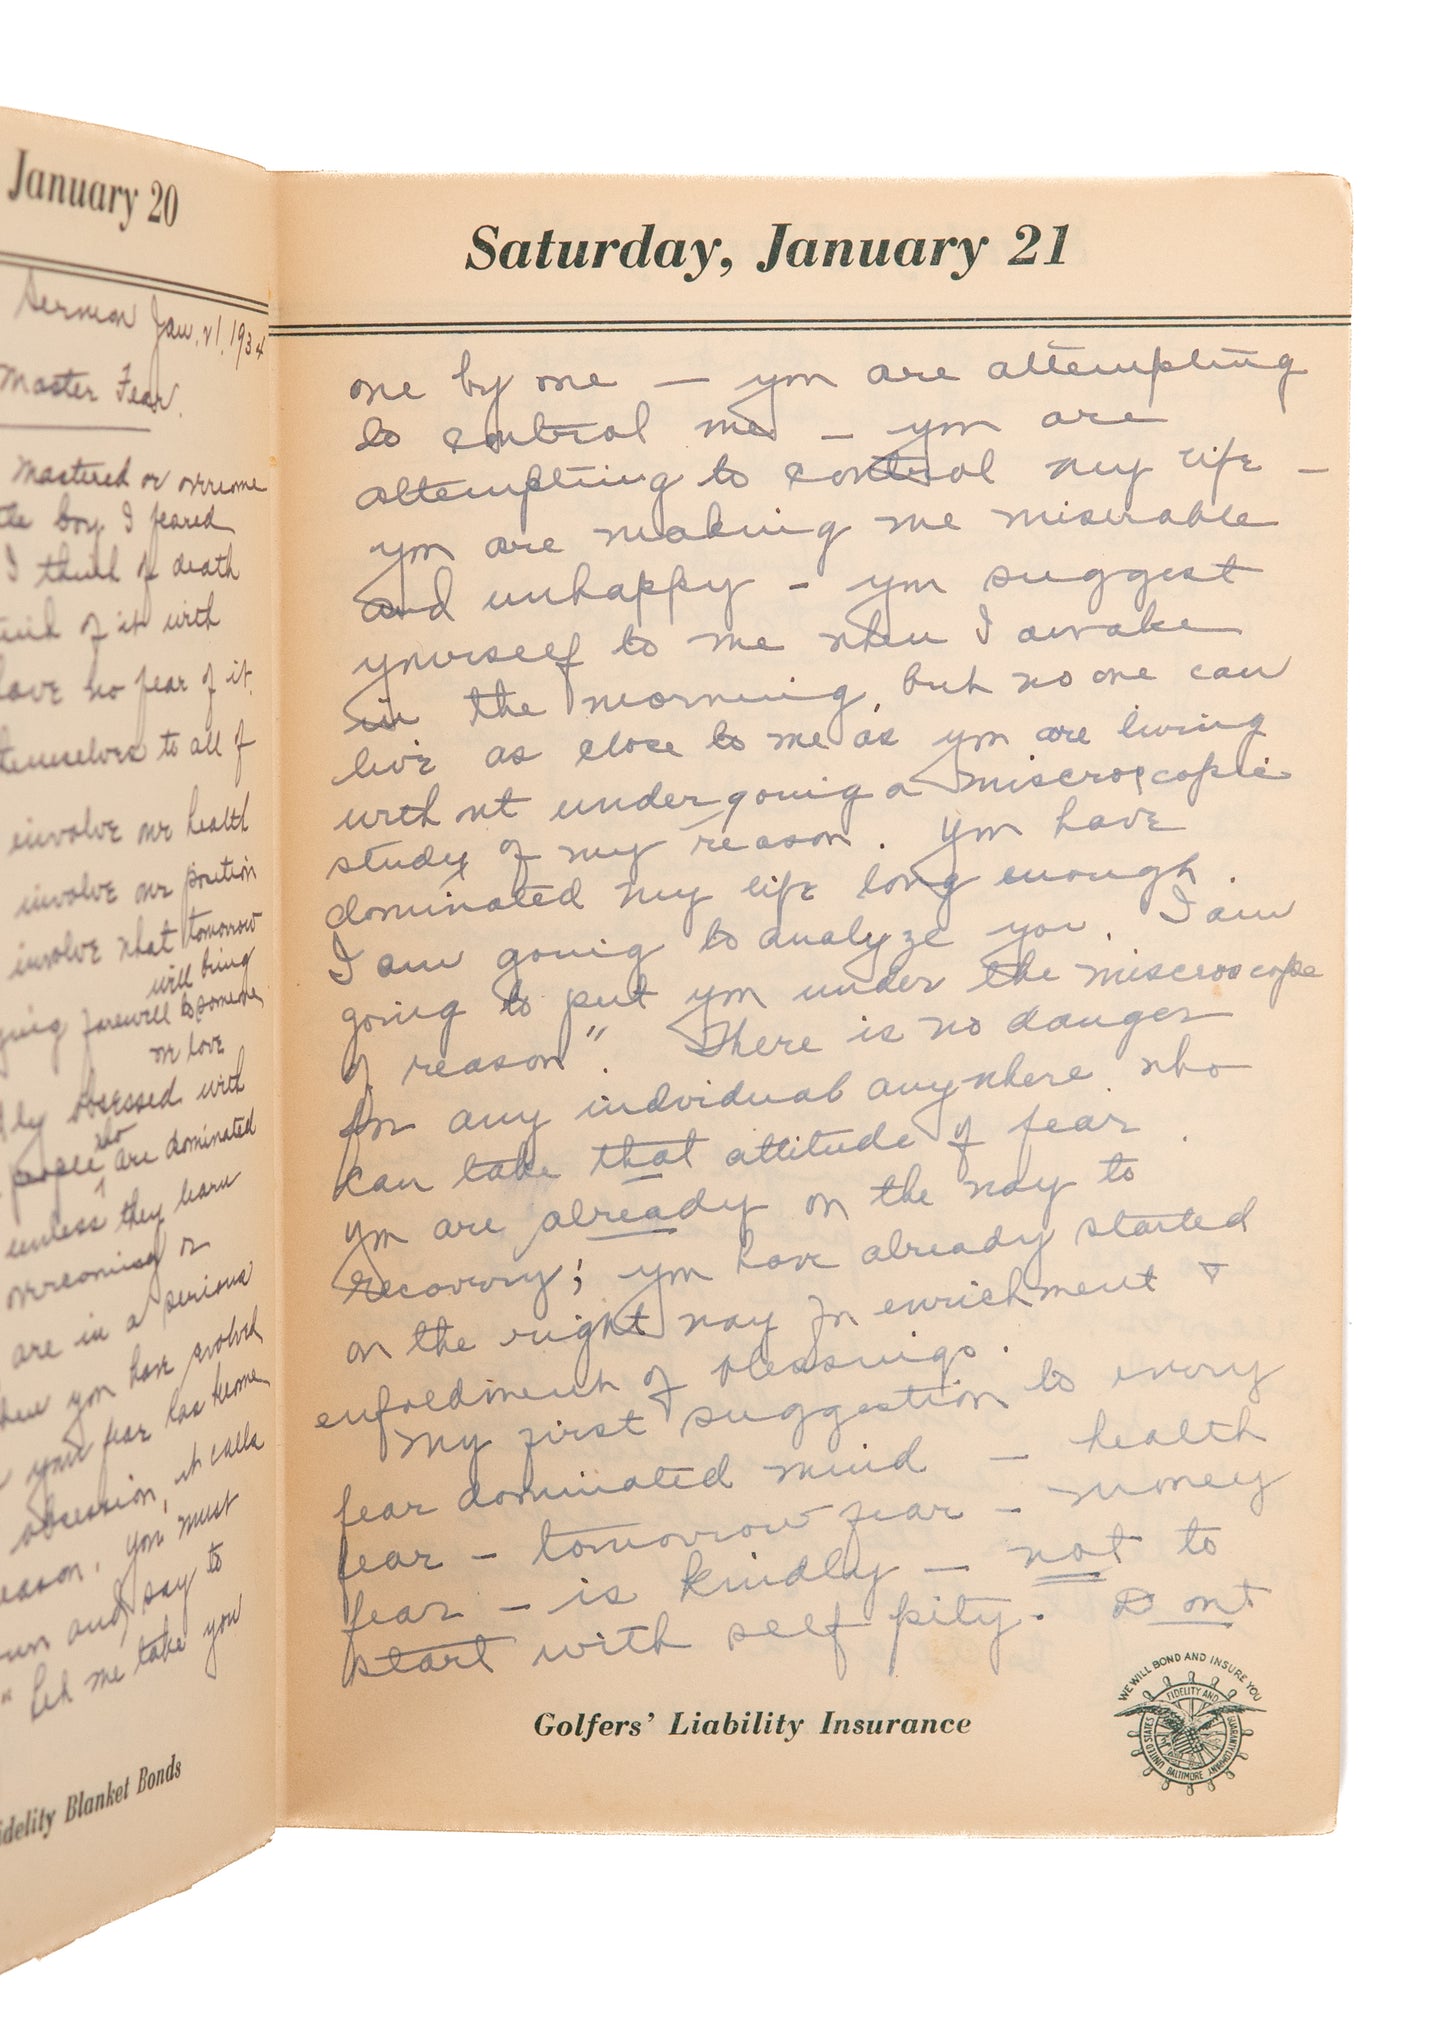 January 20
Sermon Jan. 21. 1934
Master Fear.
mastered or overcome
boy I feared
I think of death
of it with
have no fear of it.
themselves to all of
involve our health
involve our position
involve what tomorrow
will bring
farewell to someone
we love
obsessed with
people who are dominated
unless they learn
overcoming or
are in a serious
when you have evolved
your fear has become
obsession, it calls
reason. you must
and say to
" Let me take you
Fidelity Blanket Bonds
Saturday, January 21
one by one — you are attempting
to control me — you are
attempting to control my life —
you are making me miserable
and unhappy — you suggest
yourself to me when I awake
in the morning, but no one can
live as close to me as you are living
without undergoing a miscroscopic
study of my reason. You have
dominated my life long enough.
I am going to analyze you. I am
going to put you under the miscroscope
of reason". There is no danger
for any individual anywhere who
can take that attitude of fear.
you are already on the way to
recovery; you have already started
on the right way for enrichment &
enfoldment of blessings.
My first suggestion to every
fear dominated mind — health
fear — tomorrow fear — money
fear — is kindly — not to
start with self pity. Dont
Golfers' Liability Insurance
WE WILL BOND AND INSURE YOU
UNITED STATES FIDELITY AND GUARANTY COMPANY BALTIMORE